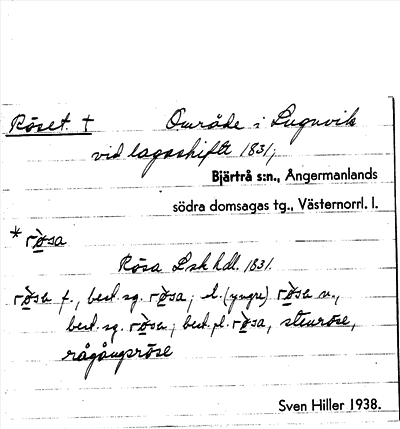 Röset. † Område i Lugnvik
vid lagaskifte 1831;
Bjärtrå s:n., Ångermanlands
södra domsagas tg., Västernorrl. l.
* rö̀sa
Rösa Lsk hdl. 1831.
rö̀sa f., best. sg. rö̀sa; el. (yngre) rö̀se n.,
best. sg. rö̀se; best. pl. rö̀sa, stenröse,
rågångsröse
Sven Hiller 1938.